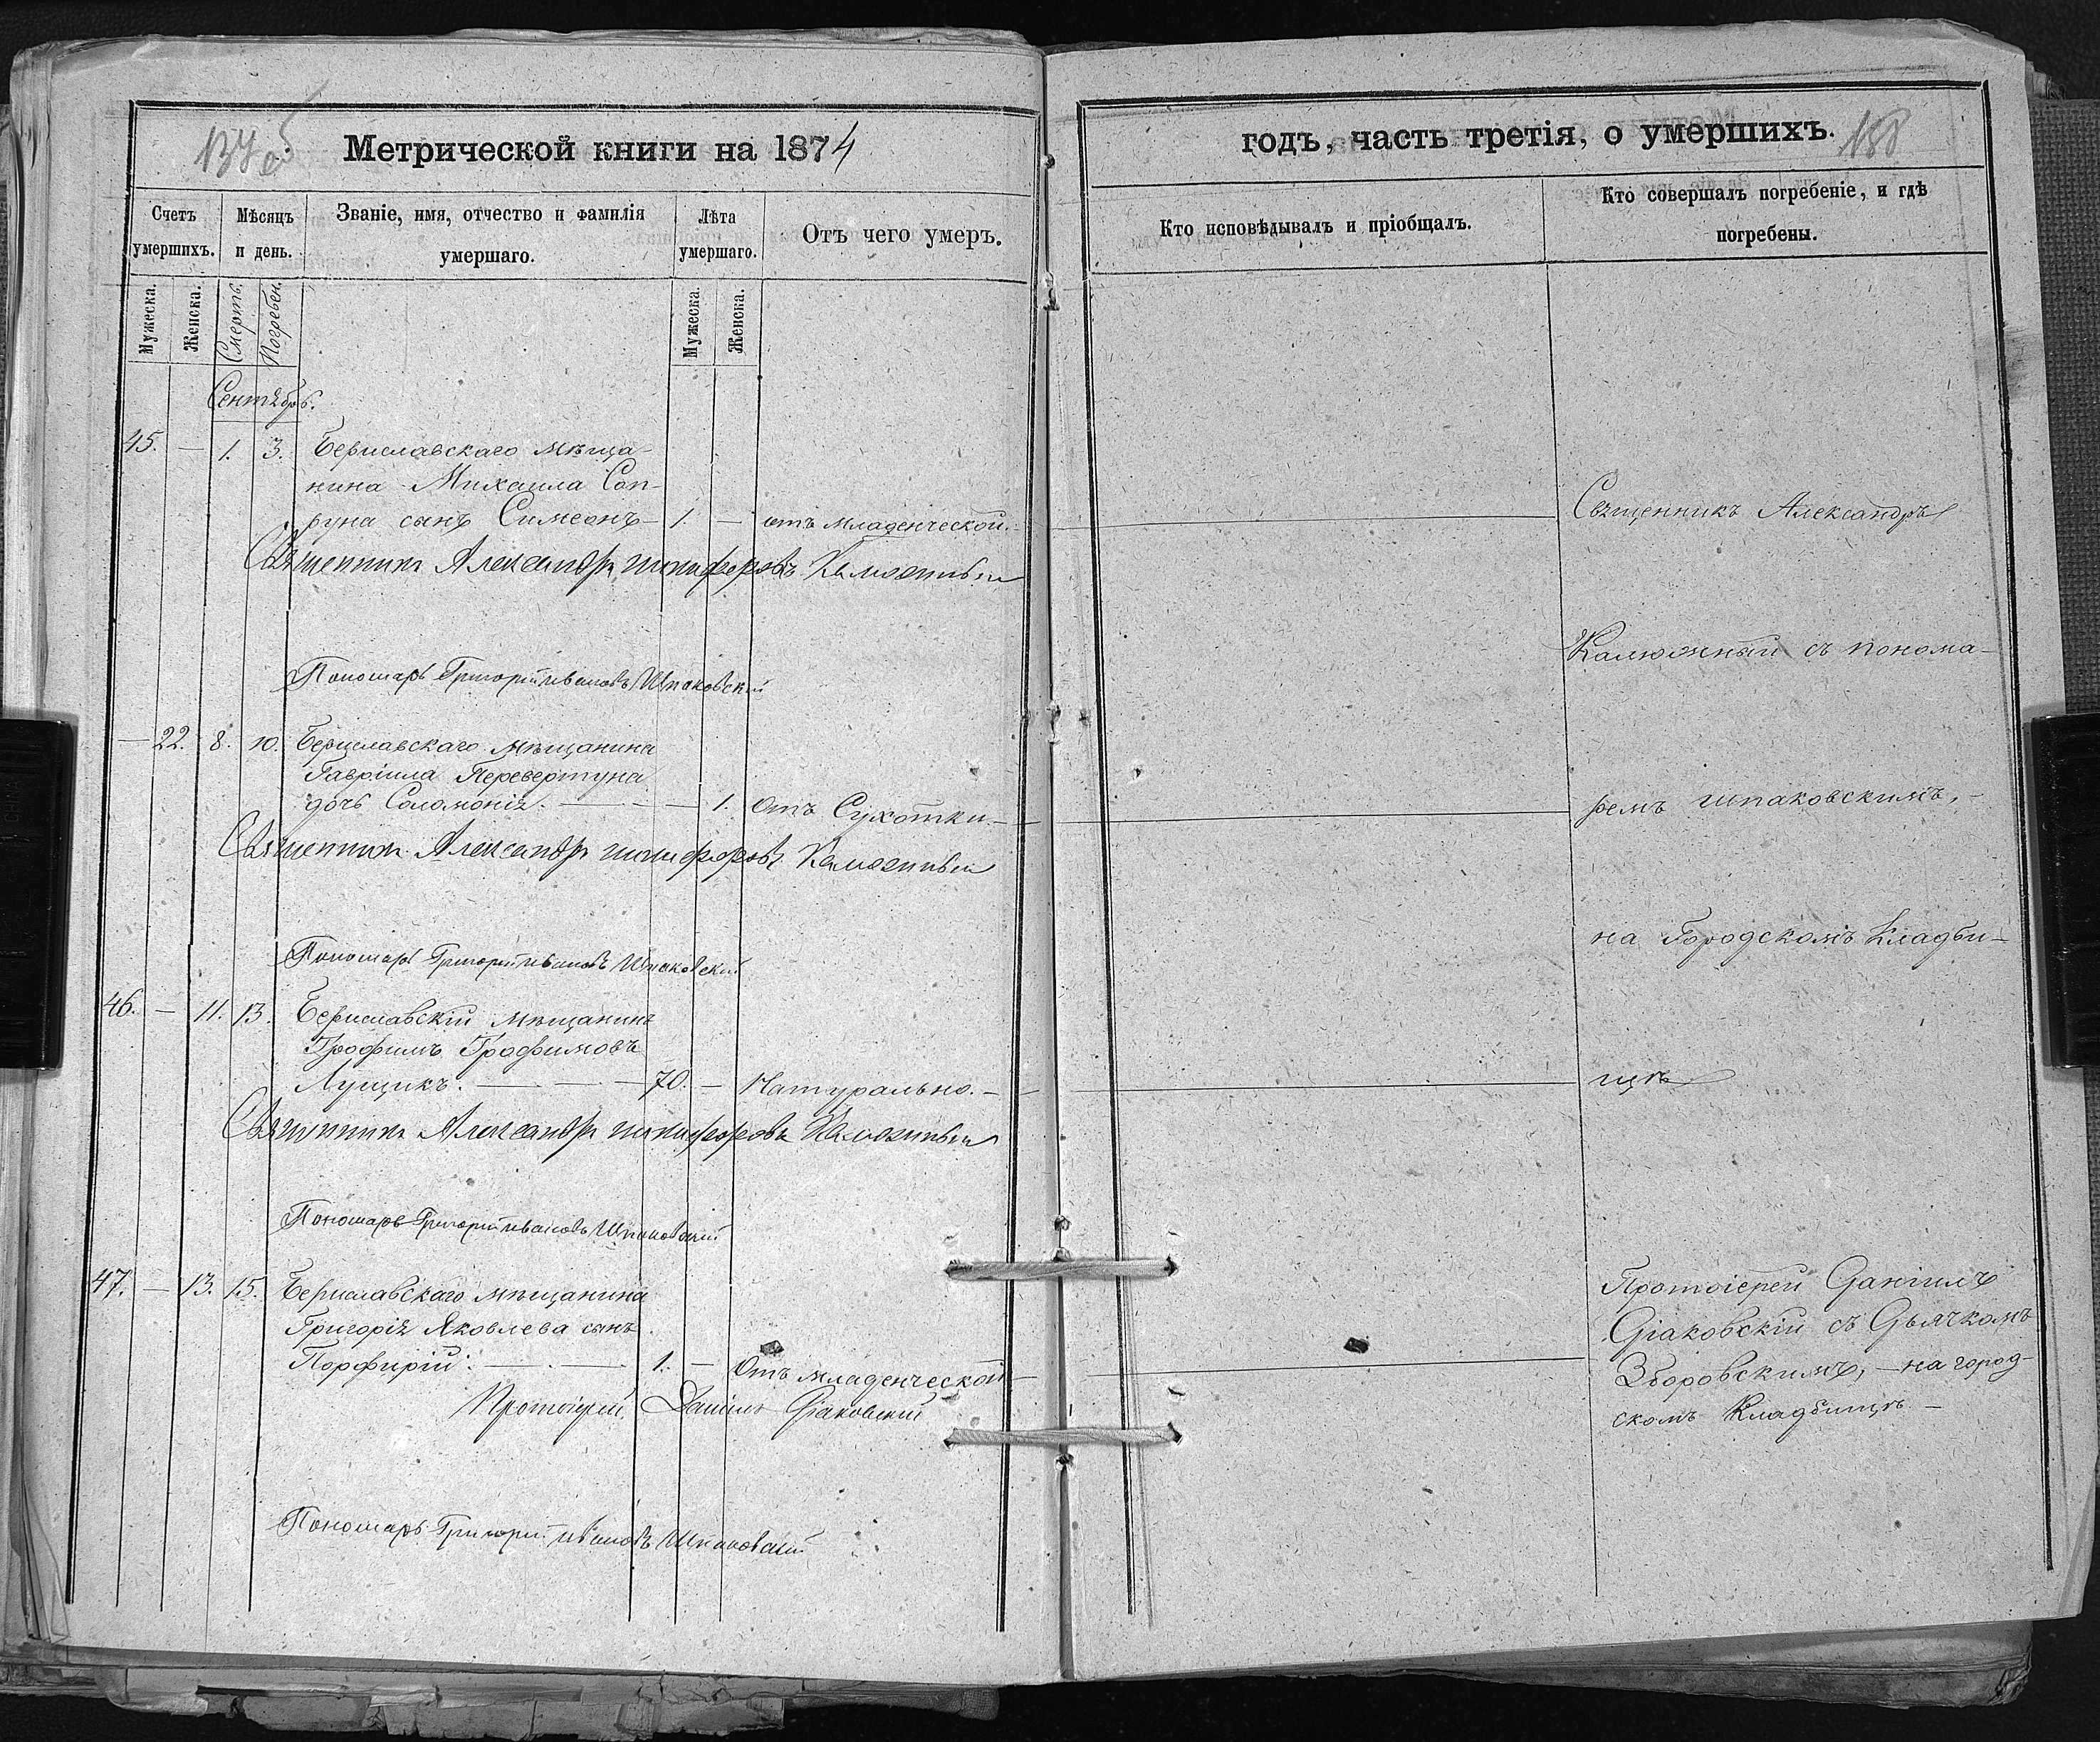 Метрической книги на 1874
годъ, часть третія, о умершихъ.
188
Счетъ умершихъ.
Мѣсяцъ и день.
Званіе, имя, отчество и фамилія умершаго.
Лѣта умершаго.
Отъ чего умеръ.
Кто исповѣдывалъ и пріобщалъ.
Кто совершалъ погребеніе, и гдѣ погребены.
Мужеска.
Женска.
Смерть.
Погребен.
Мужеска.
Женска.
Сентябрь.
45. — 1. 3. Бериславскаго мѣща-
нина Михаила Соп-
руна сынъ Симеонъ — 1. — отъ младенческой. —
Священникъ Александръ Никифоровъ Калюжный
Пономарь Григорій Ивановъ Шпаковскій
— 22. 8. 10. Бериславскаго мѣщанина
Гавріила Перевертуна
дочь Соломонія. — — — 1. Отъ Сухотки. —
Священникъ Александръ Никифоровъ Калюжный
Пономарь Григорій Ивановъ Шпаковскій
46. — 11. 13. Бериславскій мѣщанинъ
Трофимъ Трофимовъ
Лущикъ. — — — 70. — Натурально. —
Священникъ Александръ Никифоровъ Калюжный
Пономарь Григорій Ивановъ Шпаковскій
47. — 13. 15. Бериславскаго мѣщанина
Григорія Яковлева сынъ
Порфирій. — — — 1. — Отъ младенческой —
Протоіерей Даніилъ Діаковскій
Пономарь Григорій Ивановъ Шпаковскій
Священникъ Александръ
Калюжный съ понома-
ремъ Шпаковскимъ, —
на Городскомъ Кладби-
щѣ
Протоіерей Даніилъ
Діаковскій съ Дьячкомъ
Зборовскимъ, — на город-
скомъ Кладбищѣ. —